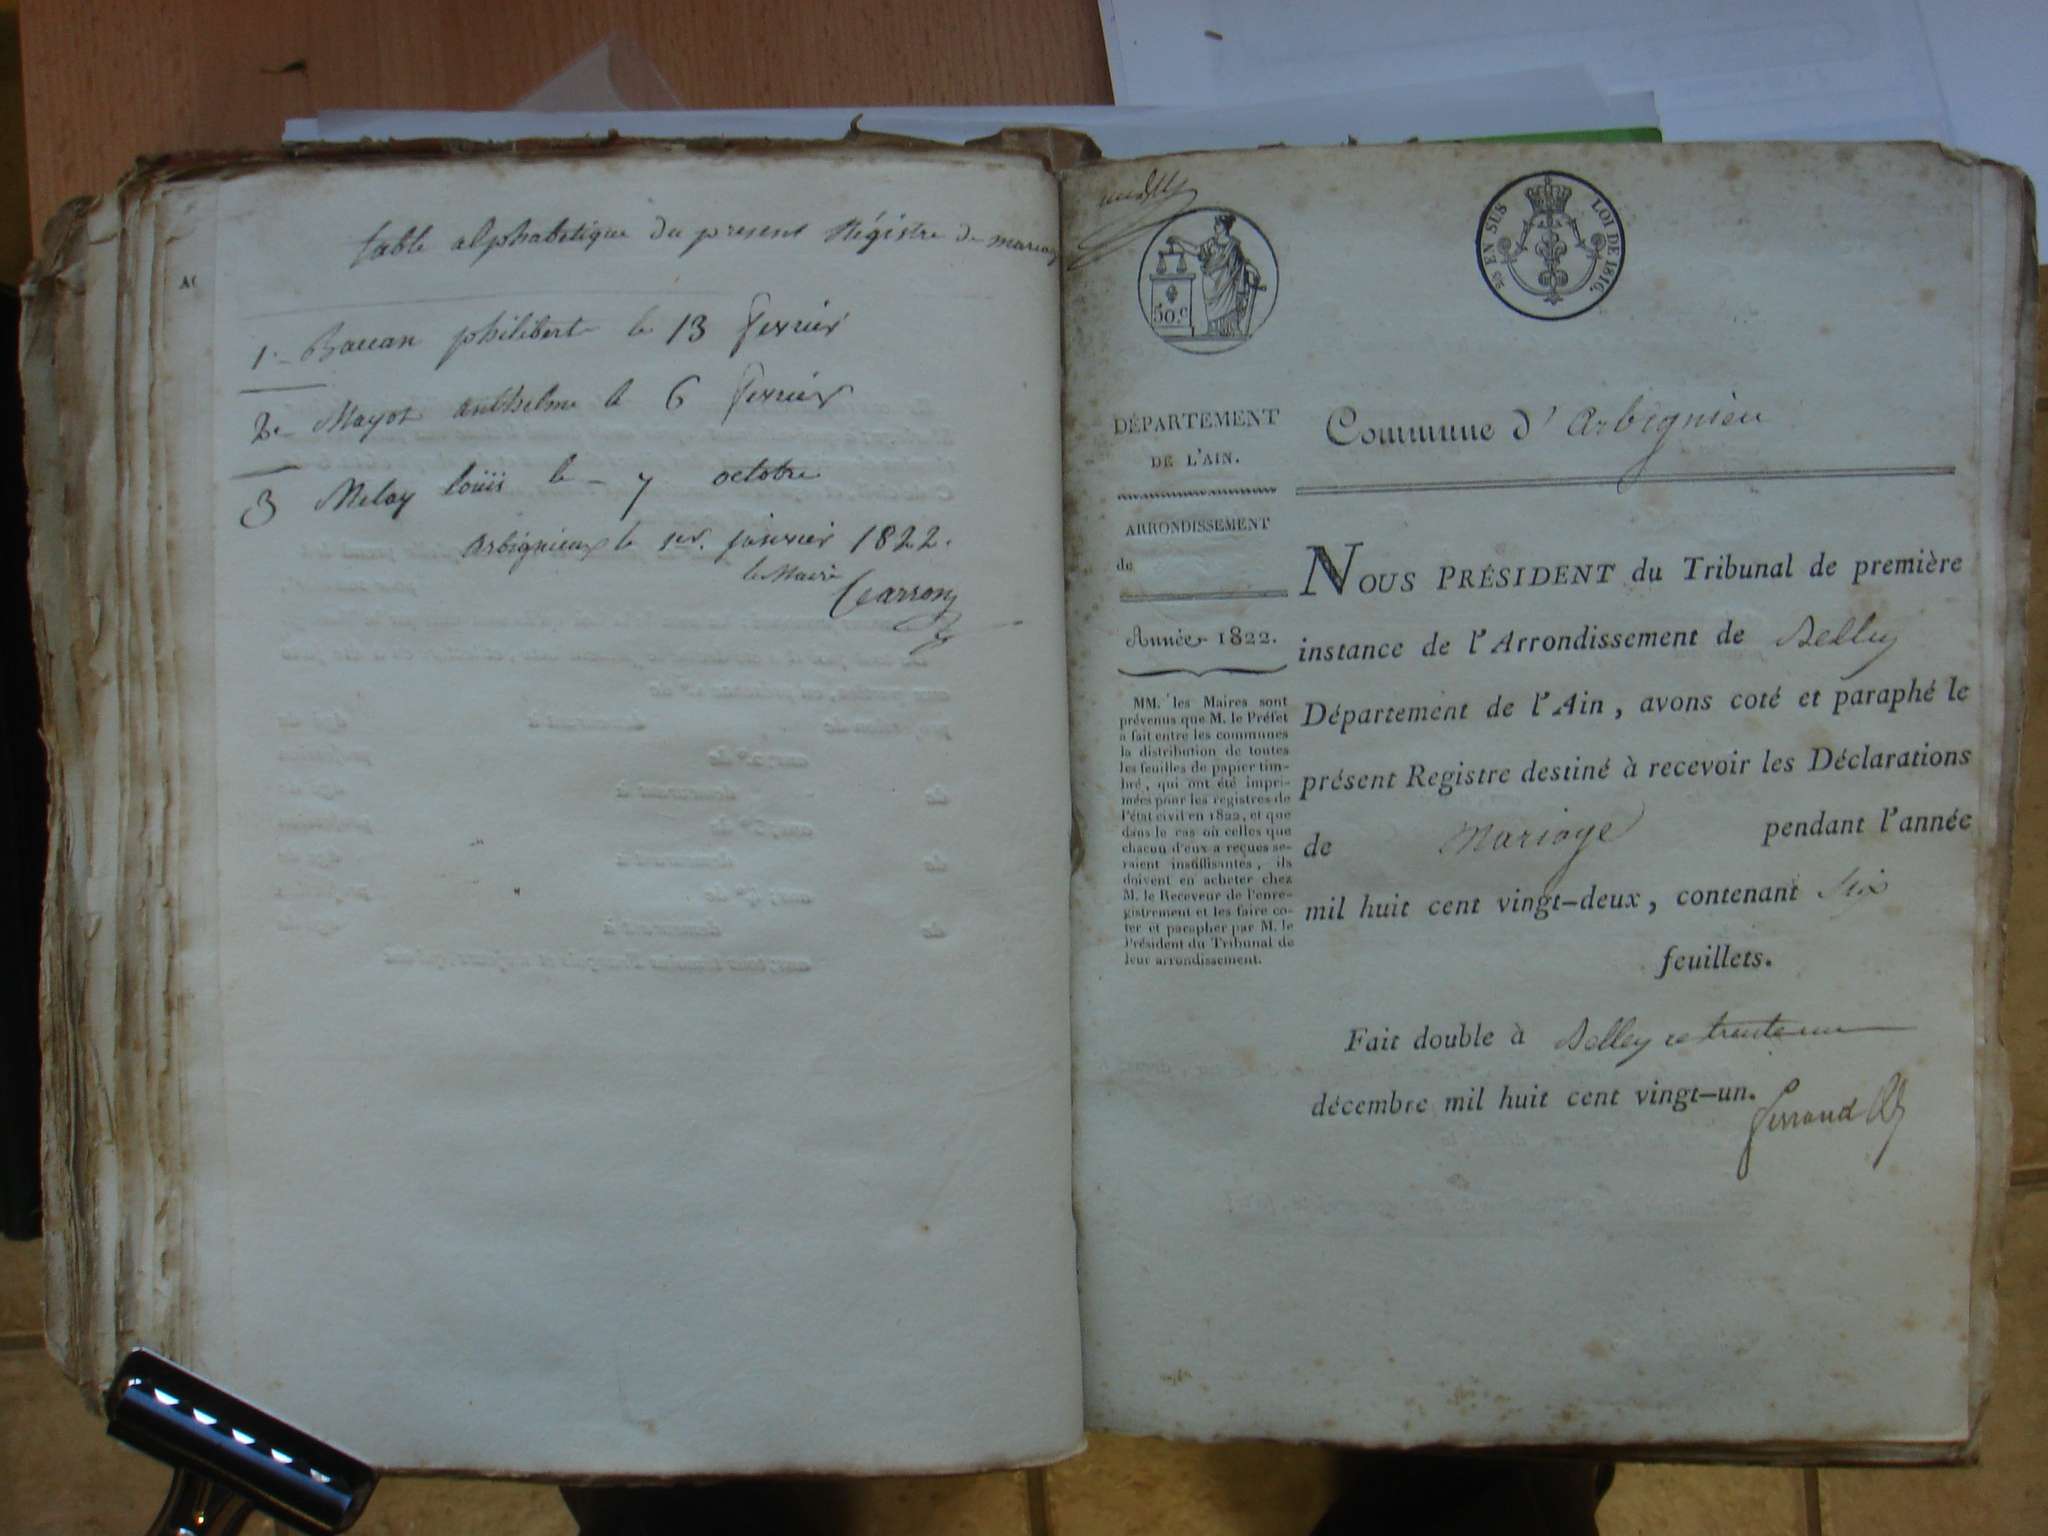 table alphabetique du present Régistre de mariag
1.- Baccan philibert le 13 fevrier
2.- Mayot anthelme le 6 fevrier
3 Melay loüis le - 7 octobre
arbignieux le 1er. janvier 1822.
le Maire
Carron
50.c
25 EN SUS LOI DE 1816.
DÉPARTEMENT
DE L'AIN.
ARRONDISSEMENT
de
Année 1822.
MM. les Maires sont
prévenus que M. le Préfet
a fait entre les communes
la distribution de toutes
les feuilles de papier tim-
bré, qui ont été impri-
mées pour les registres de
l'état civil en 1822, et que
dans le cas où celles que
chacun d'eux a reçues se-
raient insuffisantes, ils
doivent en acheter chez
M. le Receveur de l'enre-
gistrement et les faire co-
ter et parapher par M. le
Président du Tribunal de
leur arrondissement.
Commune d' Arbignieu
NOUS PRÉSIDENT du Tribunal de première
instance de l'Arrondissement de Belley
Département de l'Ain, avons coté et paraphé le
présent Registre destiné à recevoir les Déclarations
de Mariage pendant l'année
mil huit cent vingt-deux, contenant Six
feuillets.
Fait double à Belley ce trente un
décembre mil huit cent vingt-un.
Ferrand